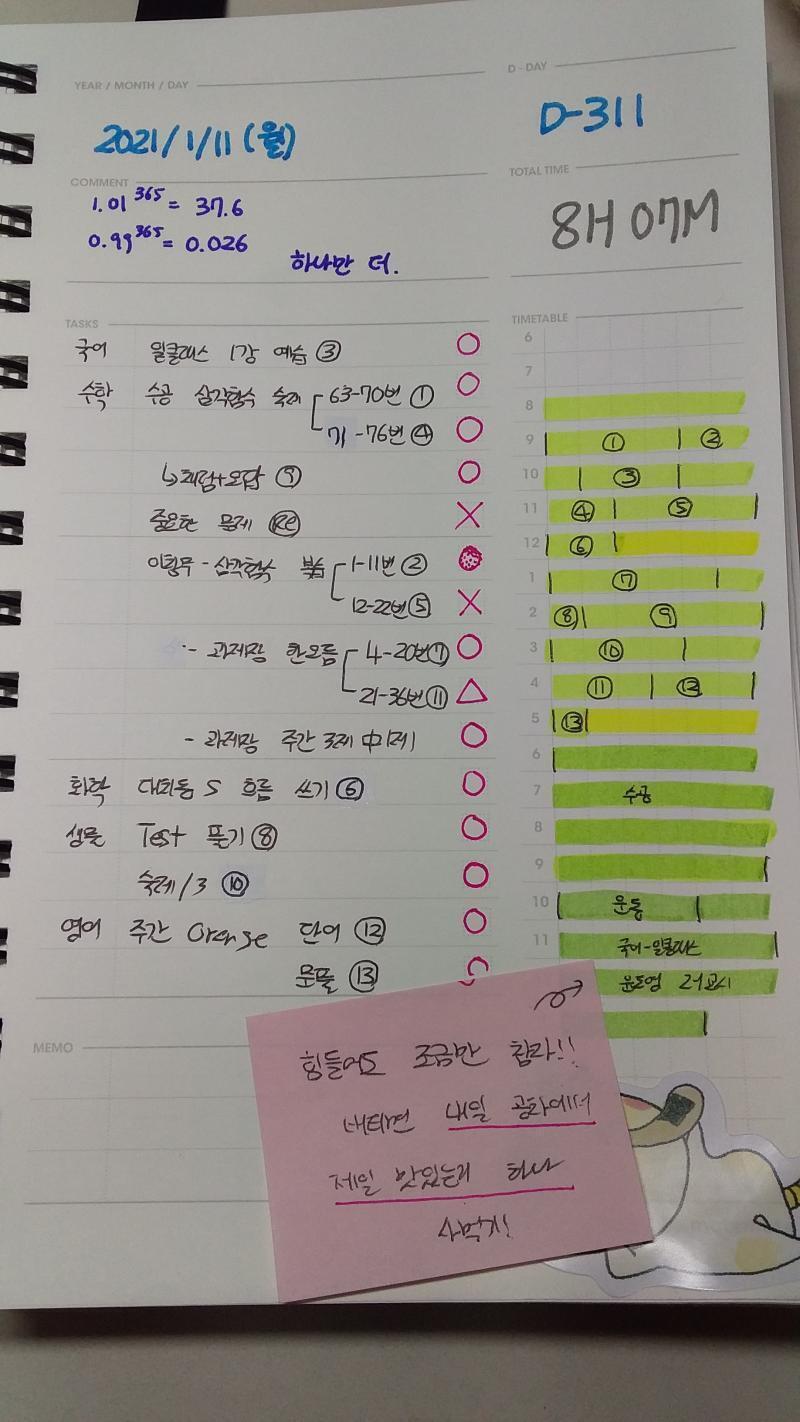 YEAR / MONTH / DAY
2021/1/11 (월)
D - DAY
D-311
COMMENT
1.01^365 = 37.6
0.99^365 = 0.026
하나만 더.
TOTAL TIME
8H 07M
TASKS
국어 윌클래스 1강 예습 ③
수학 수공 삼각함수 숙제 63-70번 ①
71-76번 ④
↳채점+오답 ⑨
중요한 문제 Re
삼각함수 복습 1-11번 ②
12-22번 ⑤
- 과제장 한오름 4-20번 ⑦
21-36번 ⑪
- 과제장 주간 3제 中 1제
화학 대회동 S 흐름 쓰기 ⑥
생물 Test 풀기 ⑧
숙제 /3 ⑩
영어 주간 Orange 단어 ⑫
문풀 ⑬
TIMETABLE
6
7
8
9 ① ②
10 ③
11 ④ ⑤
12 ⑥
1 ⑦
2 ⑧ ⑨
3 ⑩
4 ⑪ ⑫
5 ⑬
6
7 수공
8
9
10 운동
11 국어-윌클래스
윤도영 2교시
MEMO
힘들어도 조금만 참자!!
버티면 내일 공차에서
제일 맛있는거 하나
사먹자!